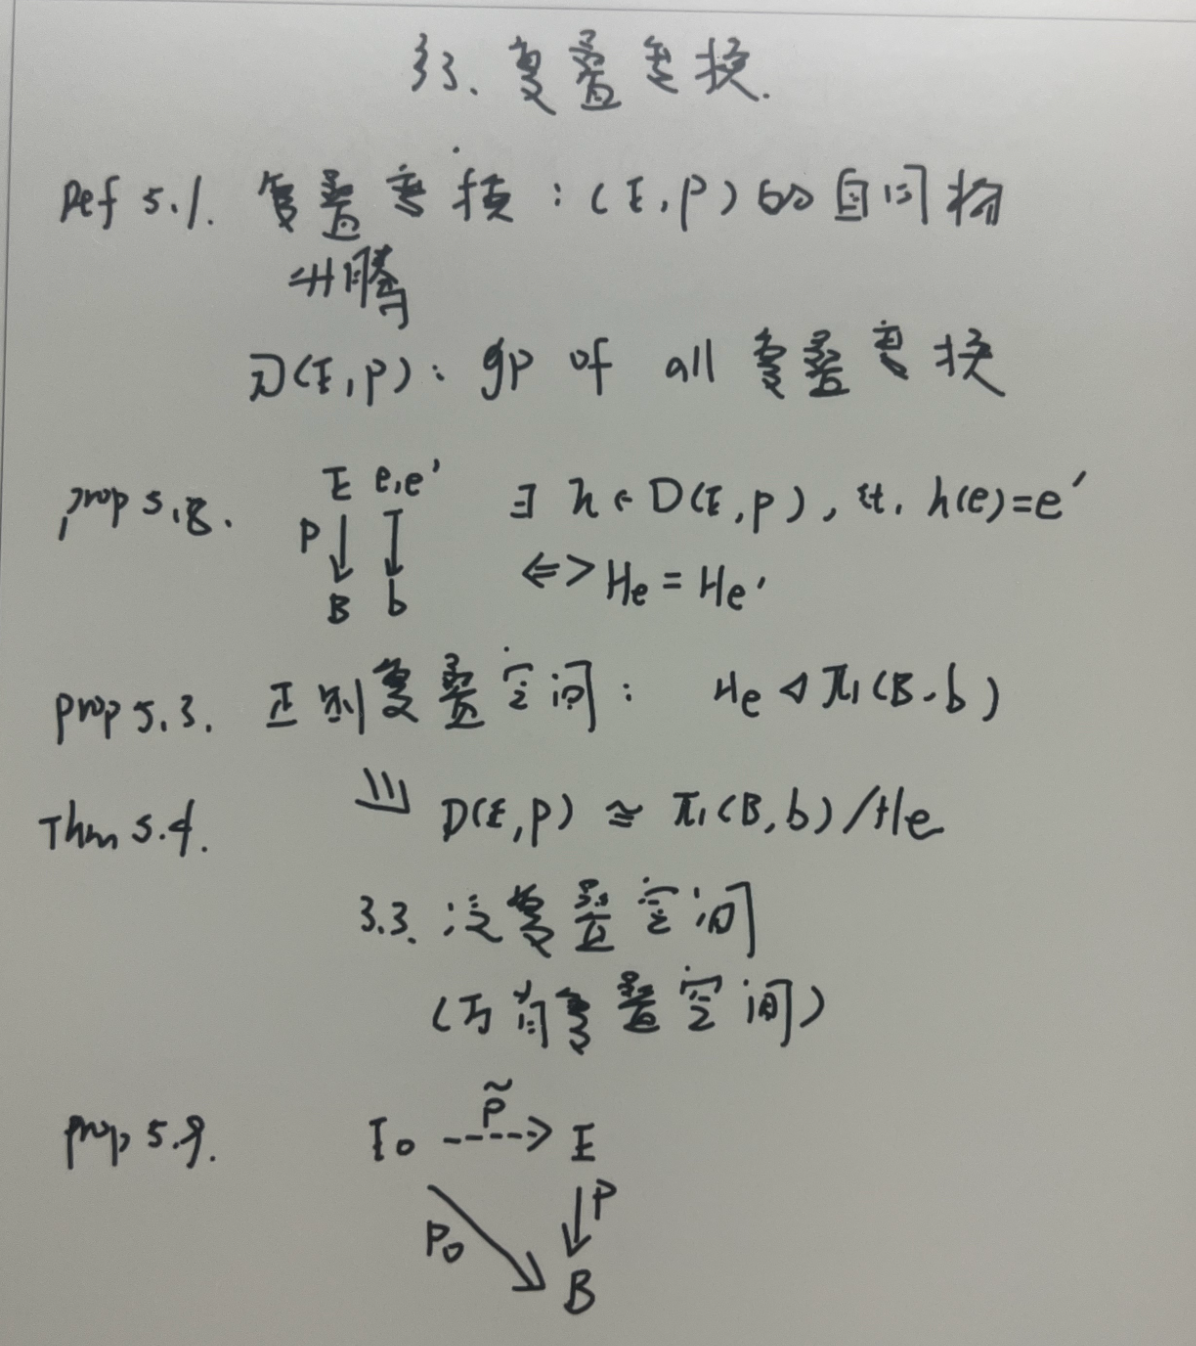 33、复叠变换.
Def 5.1. 复叠变换:(E,p)的自同构
升腾
D(E,p): gp of all 复叠变换
prop 5.8. E e,e' ∃ h ∈ D(E,p), st. h(e)=e'
p
B b ⇔ He = He'
prop 5.3. 正则复叠空间: He ◁ π₁(B,b)
Thm 5.4. D(E,p) ≅ π₁(B,b)/He
3.3. 泛复叠空间
(万有复叠空间)
prop 5.9. E₀ p̃ E
p₀ p
B